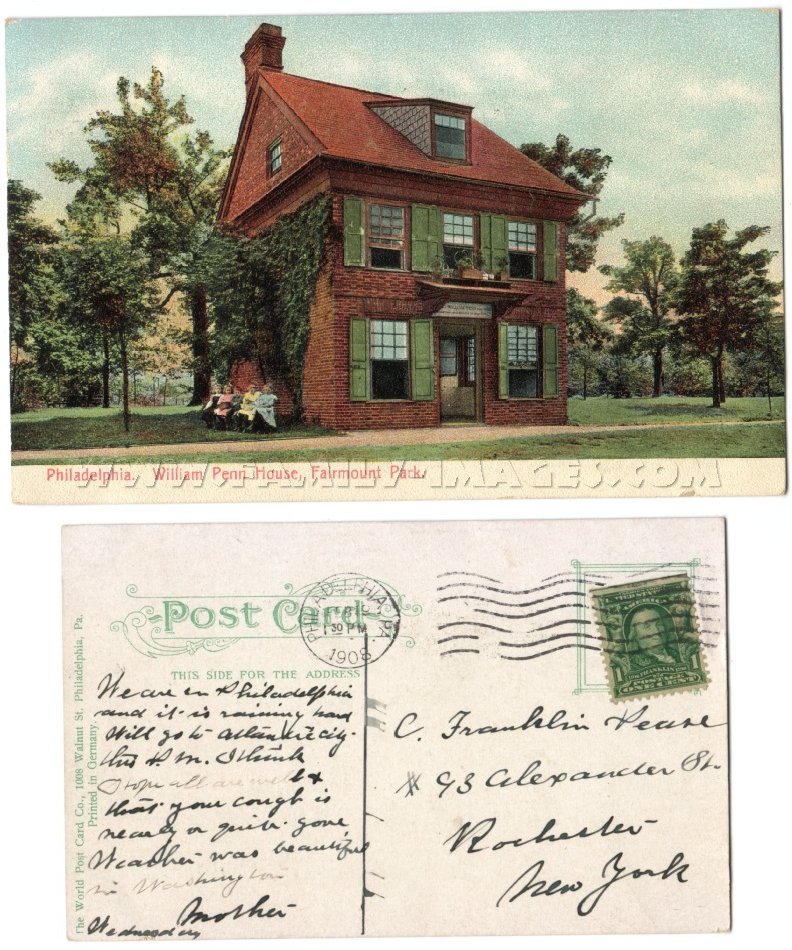 Philadelphia. William Penn House, Fairmount Park.
WWW.FAMILY-IMAGES.COM
Post Card
PHILADELPHIA, PA.
30 PM
1908
THIS SIDE FOR THE ADDRESS
The World Post Card Co., 1008 Walnut St. Philadelphia, Pa.
Printed in Germany.
We are in Philadelphia
and it is raining hard
Will go to Atlantic city
this P.M. I think
I hope all are well &
that your cough is
nearly or quite gone
Weather was beautiful
in Washington
Mother
Wednesday
C. Franklin Pease
# 93 Alexander St.
Rochester
New York
AMERICA
1 1
FRANKLIN
POSTAGE
ONE CENT